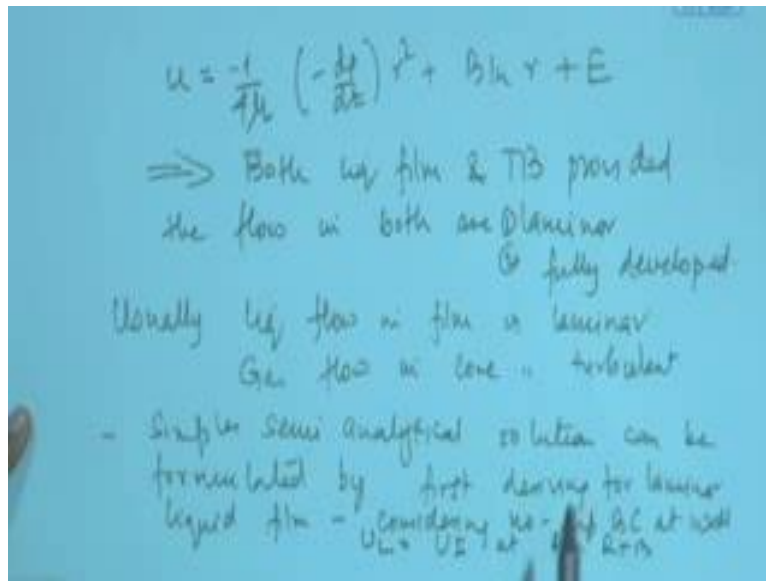 u = -1/4μ (-dp/dz) r² + B ln r + E
⇒ Both liq film & TB provided
the flow in both are ① laminar
② fully developed.
Usually liq flow in film is laminar
Gas flow in core " turbulent
- Simpler semi analytical solution can be
formulated by first deriving for laminar
liquid film - considering no-slip BC at wall
at